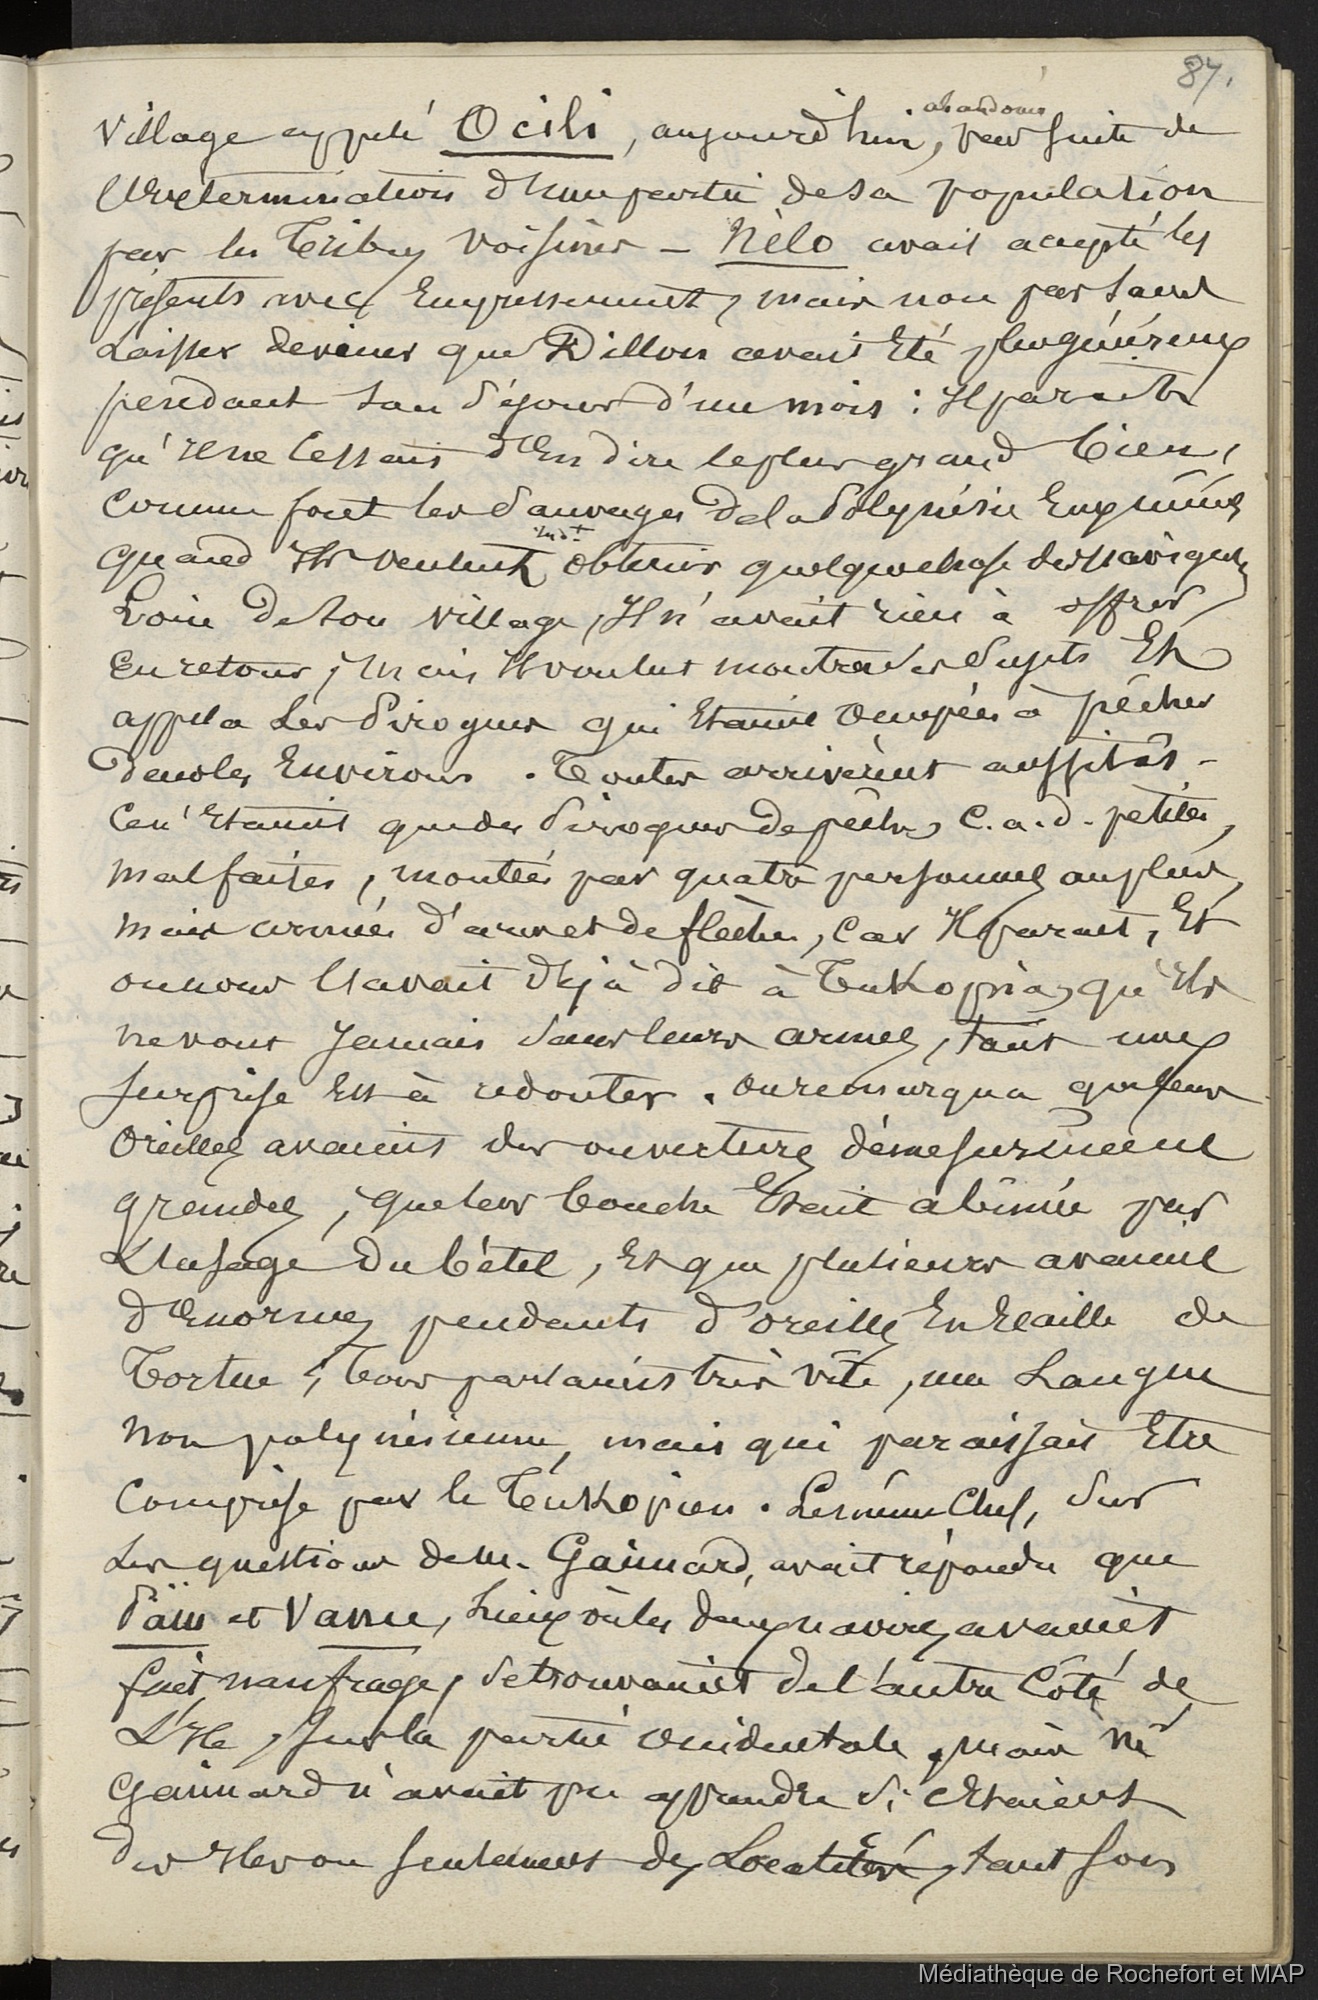 87.
abandonné
village appelé Ocili, aujourd'hui, par suite de
l'extermination d'une partie de sa population
par les tribus voisines – Nélo avait accepté les
présents avec Empressement, mais non pas sans
Laisser deviner que Dillon avait Eté plus généreux
pendant son séjour d'un mois : Il paraît
qu'Il ne cessait d'En dire le plus grand bien,
comme font les sauvages de la Polynésie
quand Ils veulent obtenir quelque chose des navigateurs
Loin de son village, Il n'avait rien à offrir
En retour, mais Il voulut montrer ses sujets Et
appela Les Pirogues qui Etaient occupées à pêcher
dans les Environs. Toutes arrivèrent aussitôt –
Ce n'Etaient que des Pirogues de pêche, c.a.d. petites,
mal faites, montées par quatre personnes au plus,
mais armées d'arcs et de flèches, car Il parait, Et
on nous l'avait déjà dit à Tukopia, qu'Ils
ne vont Jamais sans leurs armes, tant une
surprise Est à redouter. On remarqua que leurs
Oreilles avaient des ouvertures démesurément
grandes, que leur bouche Etait abîmée par
L'usage du bétel, Et que plusieurs avaient
d'Enormes pendants d'oreilles En Ecaille de
Tortue ; Tous parlaient très vite, une Langue
Non polynésienne, mais qui paraissait Etre
Comprise par le Tukopien. Le même Chef, sur
Les questions de M. Gaimard, avait répondu que
Païu et Vanu, Lieux où les deux navires avaient
fait naufrage, se trouvaient de l'autre Côté de
L'Ile, sur la partie occidentale, mais Mr
Gaimard n'avait pu apprendre si c'Etaient
des Iles ou seulement des Localités, tant son
Médiathèque de Rochefort et MAP